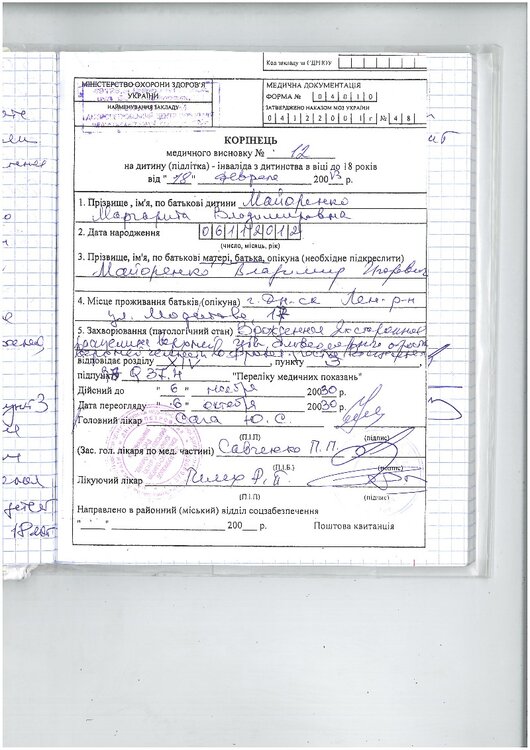 Код закладу за ЄДРПОУ
МІНІСТЕРСТВО ОХОРОНИ ЗДОРОВ'Я
УКРАЇНИ
НАЙМЕНУВАННЯ ЗАКЛАДУ
МЕДИЧНА ДОКУМЕНТАЦІЯ
ФОРМА № 04010
ЗАТВЕРДЖЕНО НАКАЗОМ МОЗ УКРАЇНИ
04122001г № 48
КОРІНЕЦЬ
медичного висновку № 12
на дитину (підлітка) - інваліда з дитинства в віці до 18 років
від " 18 " февраля 200 13 р.
1. Прізвище, ім'я, по батькові дитини Майоренко
Маргарита Владимировна
2. Дата народження 06112012
(число, місяць, рік)
3. Прізвище, ім'я, по батькові матері, батька, опікуна (необхідне підкреслити)
Майоренко Владимир Игоревич
4. Місце проживання батьків (опікуна) г. Дн-ск Лен- р-н
ул.
5. Захворювання (патологічний стан) Врожденная двусторонняя
верхней губы, альвеолярного
верхней челюсти
відповідає розділу XIV, пункту 3
підпункту Q 37.4 "Переліку медичних показань"
Дійсний до " 6 " ноября 20030 р.
Дата переогляду " 6 " октября 20030 р.
Головний лікар Сага Ю. С.
(П.І.П) (підпис)
(Зас. гол. лікаря по мед. частині) Савченко П. П.
(П.І.Б.) (підпис)
Лікуючий лікар
(П.І.П) (підпис)
Направлено в районний (міський) відділ соцзабезпечення
" " 200 р. Поштова квитанція
18 лет